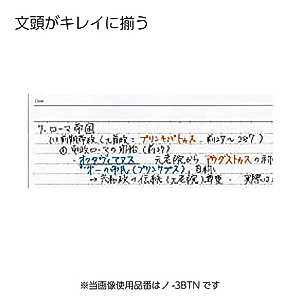 文頭がキレイに揃う
Date
7. ローマ帝国
(1) 前期帝政(元首政：プリンキパトゥス、前27～287
① 帝政ローマの開始(前27)
・オクタヴィアヌス 元老院から アウグストゥス の称
"第一の市民(プリンケプス)"自称
→ 共和政の伝統(元老院)尊重、実際は
※当画像使用品番はノ-3BTNです